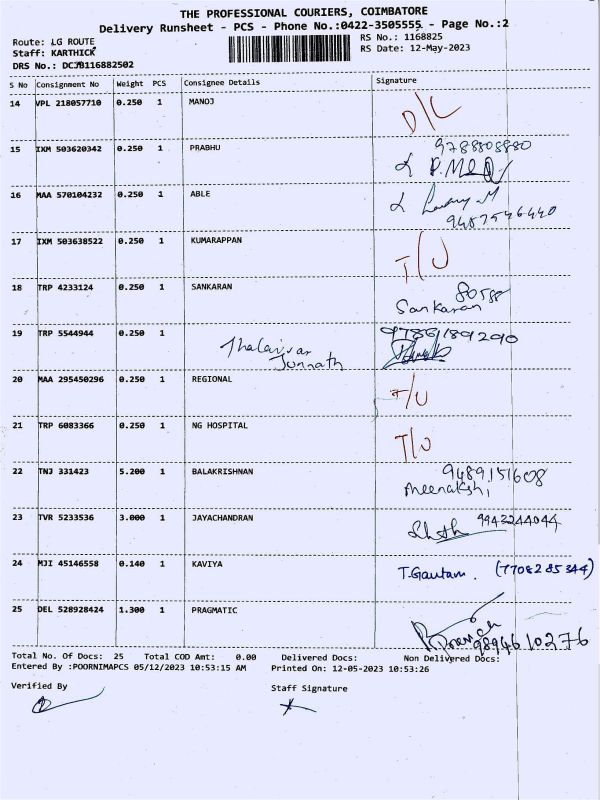 THE PROFESSIONAL COURIERS, COIMBATORE
Delivery Runsheet - PCS - Phone No.:0422-3505555 - Page No.:2
Route: LG ROUTE
Staff: KARTHICK
DRS No.: DCJB116882502
RS No.: 1168825
RS Date: 12-May-2023
S No Consignment No Weight PCS Consignee Details Signature
14 VPL 218057710 0.250 1 MANOJ D/L
15 IXM 503620342 0.250 1 PRABHU 9788808880
16 MAA 570104232 0.250 1 ABLE 9487546440
17 IXM 503638522 0.250 1 KUMARAPPAN T/U
18 TRP 4233124 0.250 1 SANKARAN 80588
Sankaran
19 TRP 5544944 0.250 1 9786189290
20 MAA 295450296 0.250 1 REGIONAL T/U
21 TRP 6083366 0.250 1 NG HOSPITAL T/U
22 TNJ 331423 5.200 1 BALAKRISHNAN 9489151608
Meenakshi
23 TVR 5233536 3.000 1 JAYACHANDRAN 9942244044
24 MJI 45146558 0.140 1 KAVIYA T.Gautam. (7708285344)
25 DEL 528928424 1.300 1 PRAGMATIC 9894610276
Total No. Of Docs: 25 Total COD Amt: 0.00 Delivered Docs: Non Delivered Docs:
Entered By :POORNIMAPCS 05/12/2023 10:53:15 AM Printed On: 12-05-2023 10:53:26
Verified By Staff Signature